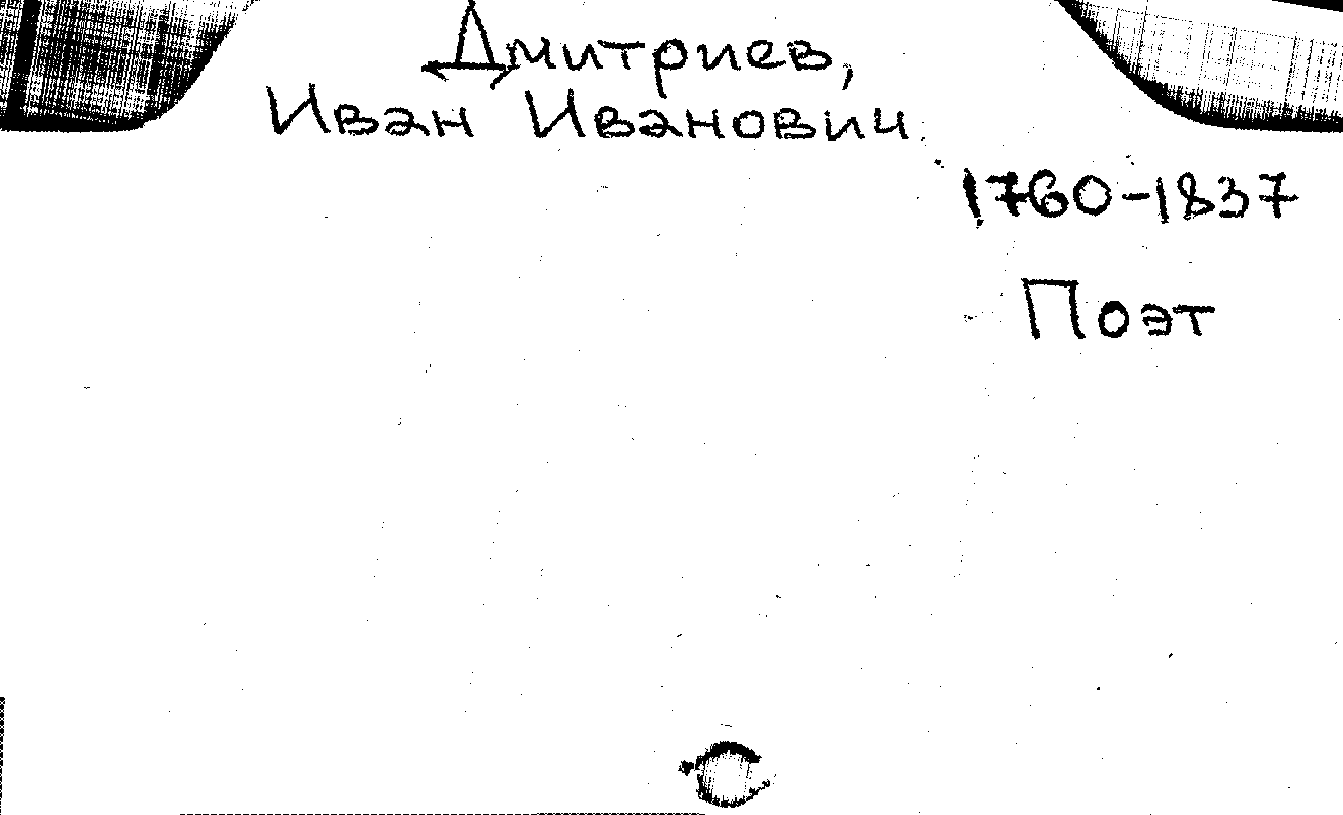 Дмитриев,
Иван Иванович
1760-1837
Поэт